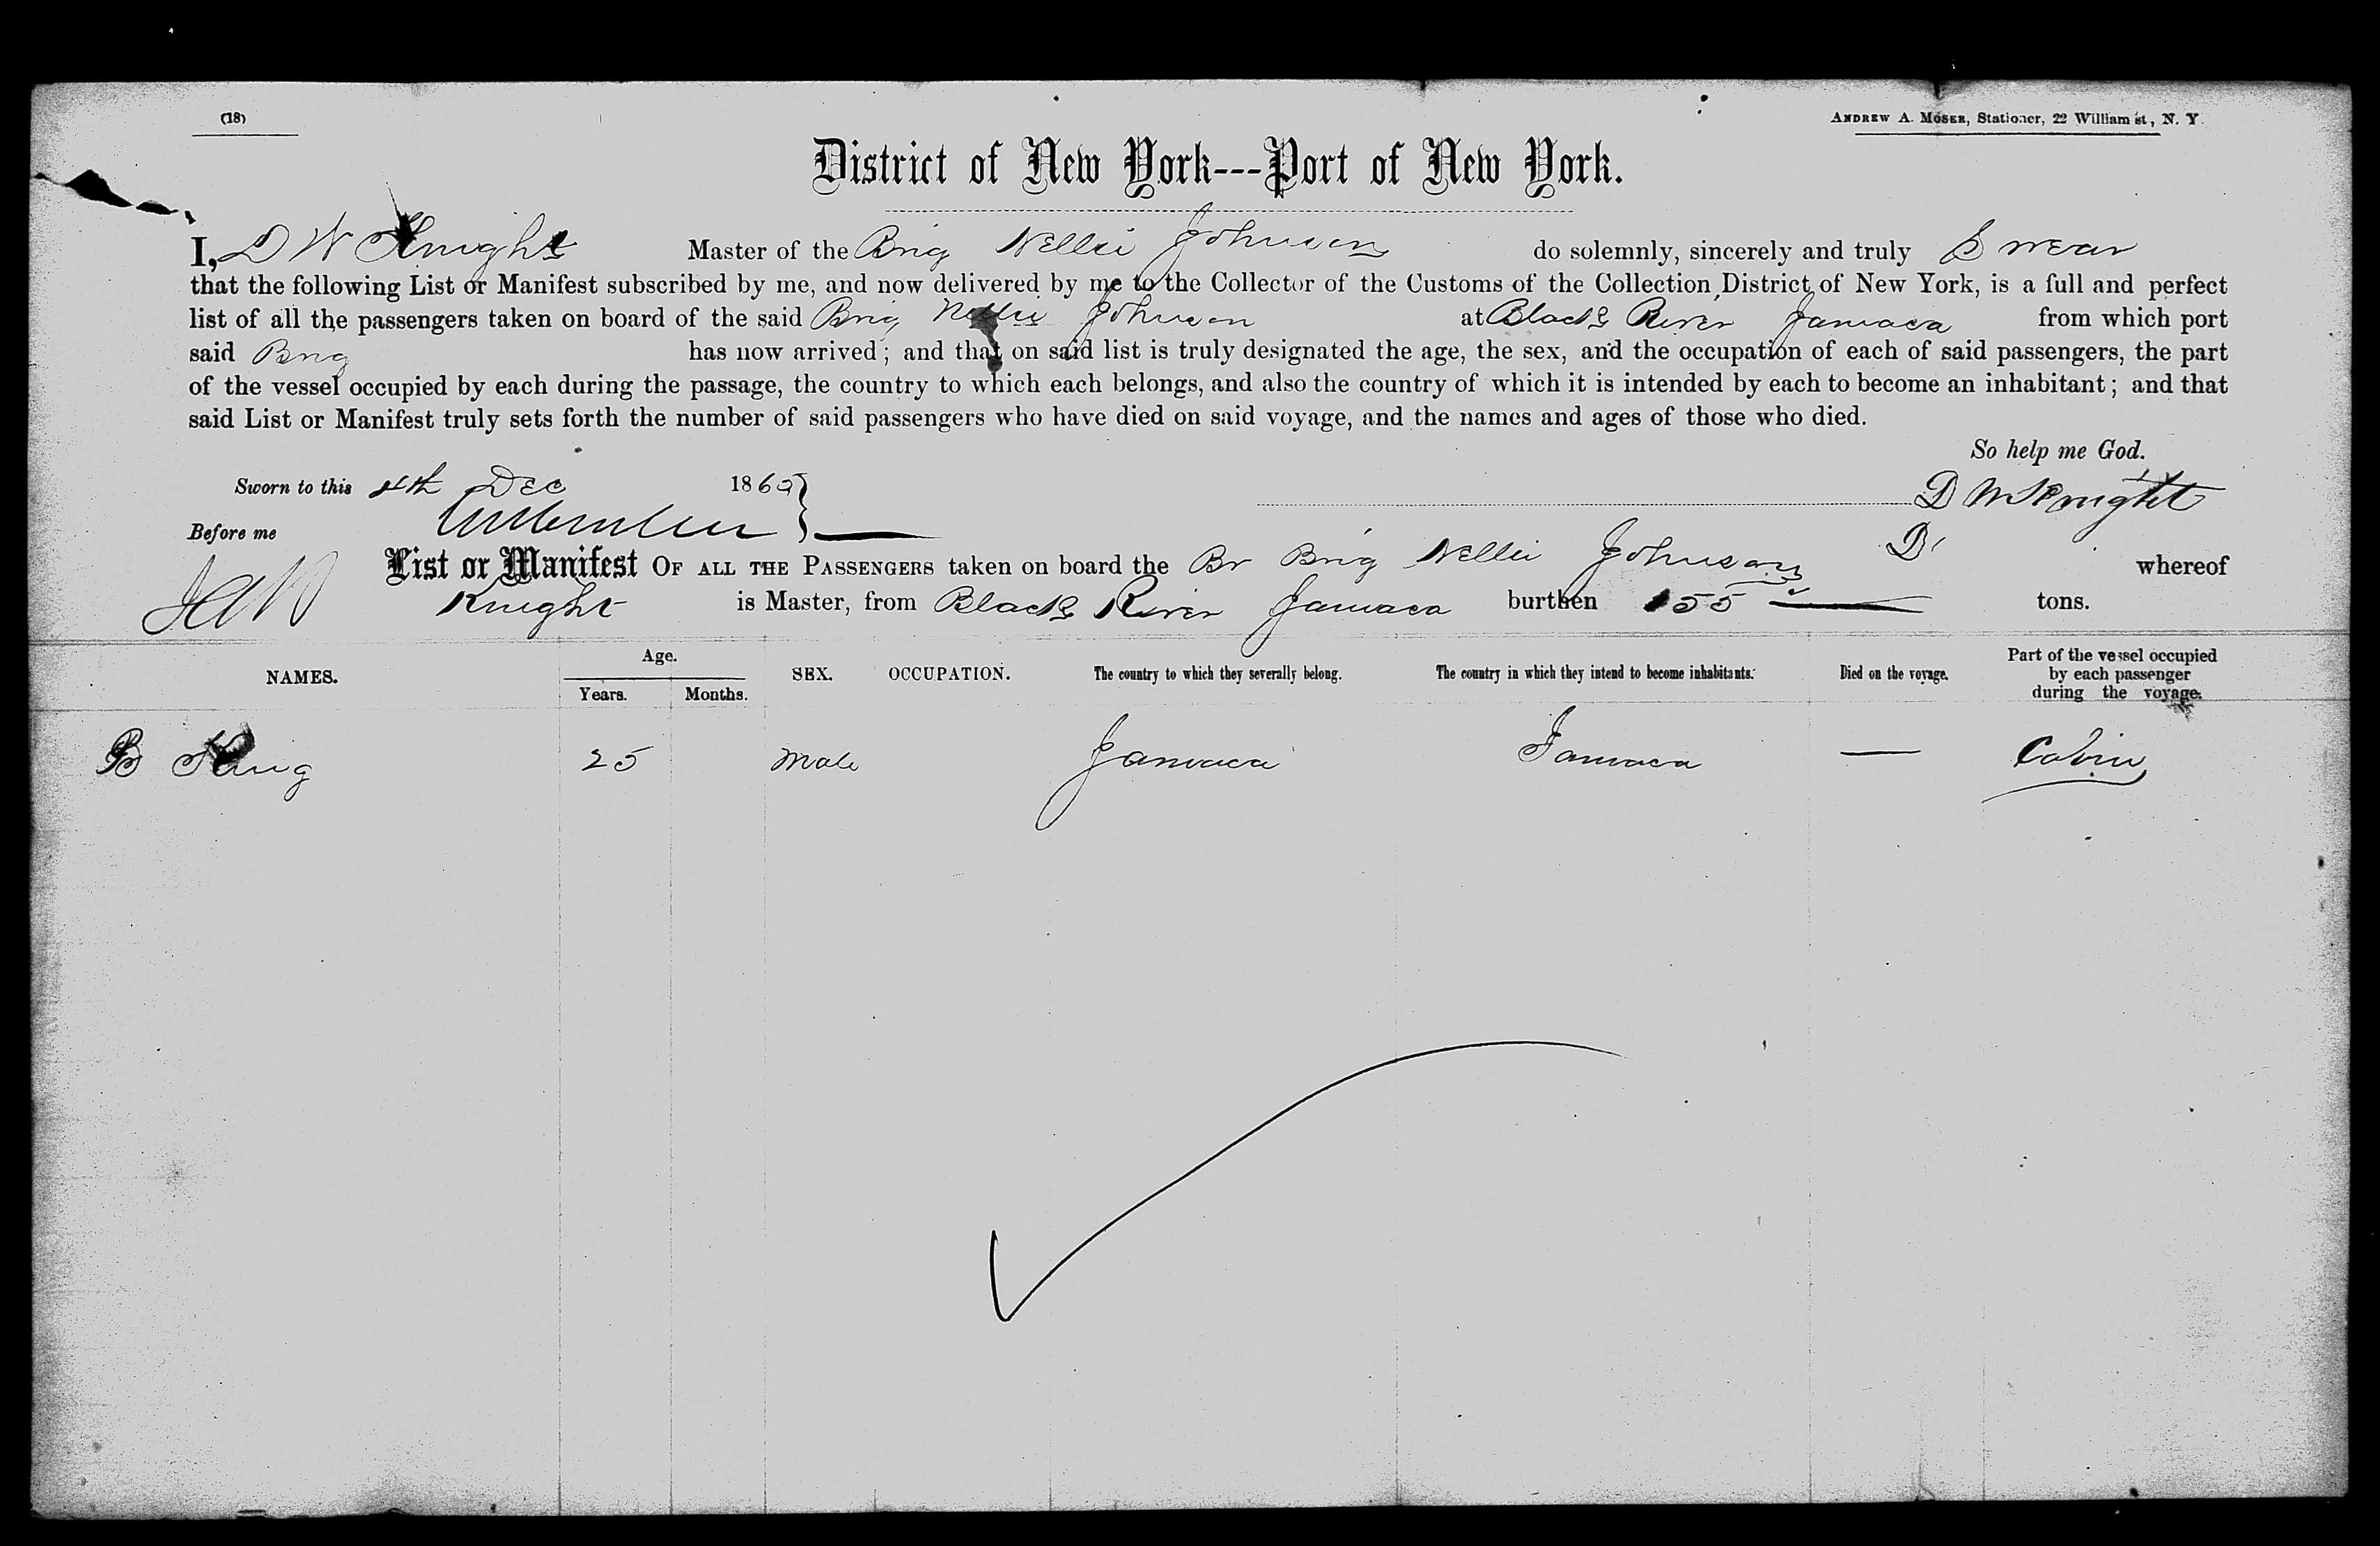 (18)
ANDREW A. MOSER, Stationer, 22 William st, N. Y.
District of New York---Port of New York.
I, D W Knight Master of the Brig Nellie Johnson do solemnly, sincerely and truly Swear
that the following List or Manifest subscribed by me, and now delivered by me to the Collector of the Customs of the Collection District of New York, is a full and perfect
list of all the passengers taken on board of the said Brig Nellie Johnson at Black River Jamaca from which port
said Brig has now arrived; and that on said list is truly designated the age, the sex, and the occupation of each of said passengers, the part
of the vessel occupied by each during the passage, the country to which each belongs, and also the country of which it is intended by each to become an inhabitant; and that
said List or Manifest truly sets forth the number of said passengers who have died on said voyage, and the names and ages of those who died.
So help me God.
Sworn to this 4th Dec 186 D W Knight
Before me
List or Manifest OF ALL THE PASSENGERS taken on board the Br Brig Nellie Johnson D whereof
Knight is Master, from Black River Jamaca burthen 155 tons.
NAMES. Age. Years. Months. SEX. OCCUPATION. The country to which they severally belong. The country in which they intend to become inhabitants. Died on the voyage. Part of the vessel occupied by each passenger during the voyage.
B King 25 Male Jamaca Jamaca — Cabin